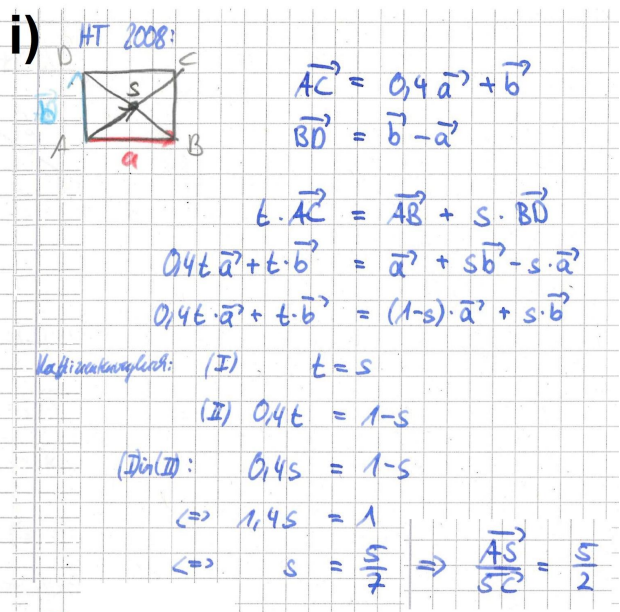 i) HT 2008:
D C
S
b⃗
A B
a
AC⃗ = 0,4 a⃗ + b⃗
BD⃗ = b⃗ - a⃗
t · AC⃗ = AB⃗ + s · BD⃗
0,4t a⃗ + t · b⃗ = a⃗ + s b⃗ - s · a⃗
0,4t · a⃗ + t · b⃗ = (1-s) · a⃗ + s · b⃗
Koeffizientenvergleich: (I) t = s
(II) 0,4t = 1-s
(I) in (II): 0,4s = 1-s
<=> 1,4s = 1
<=> s = 5/7 => AS⃗/SC⃗ = 5/2